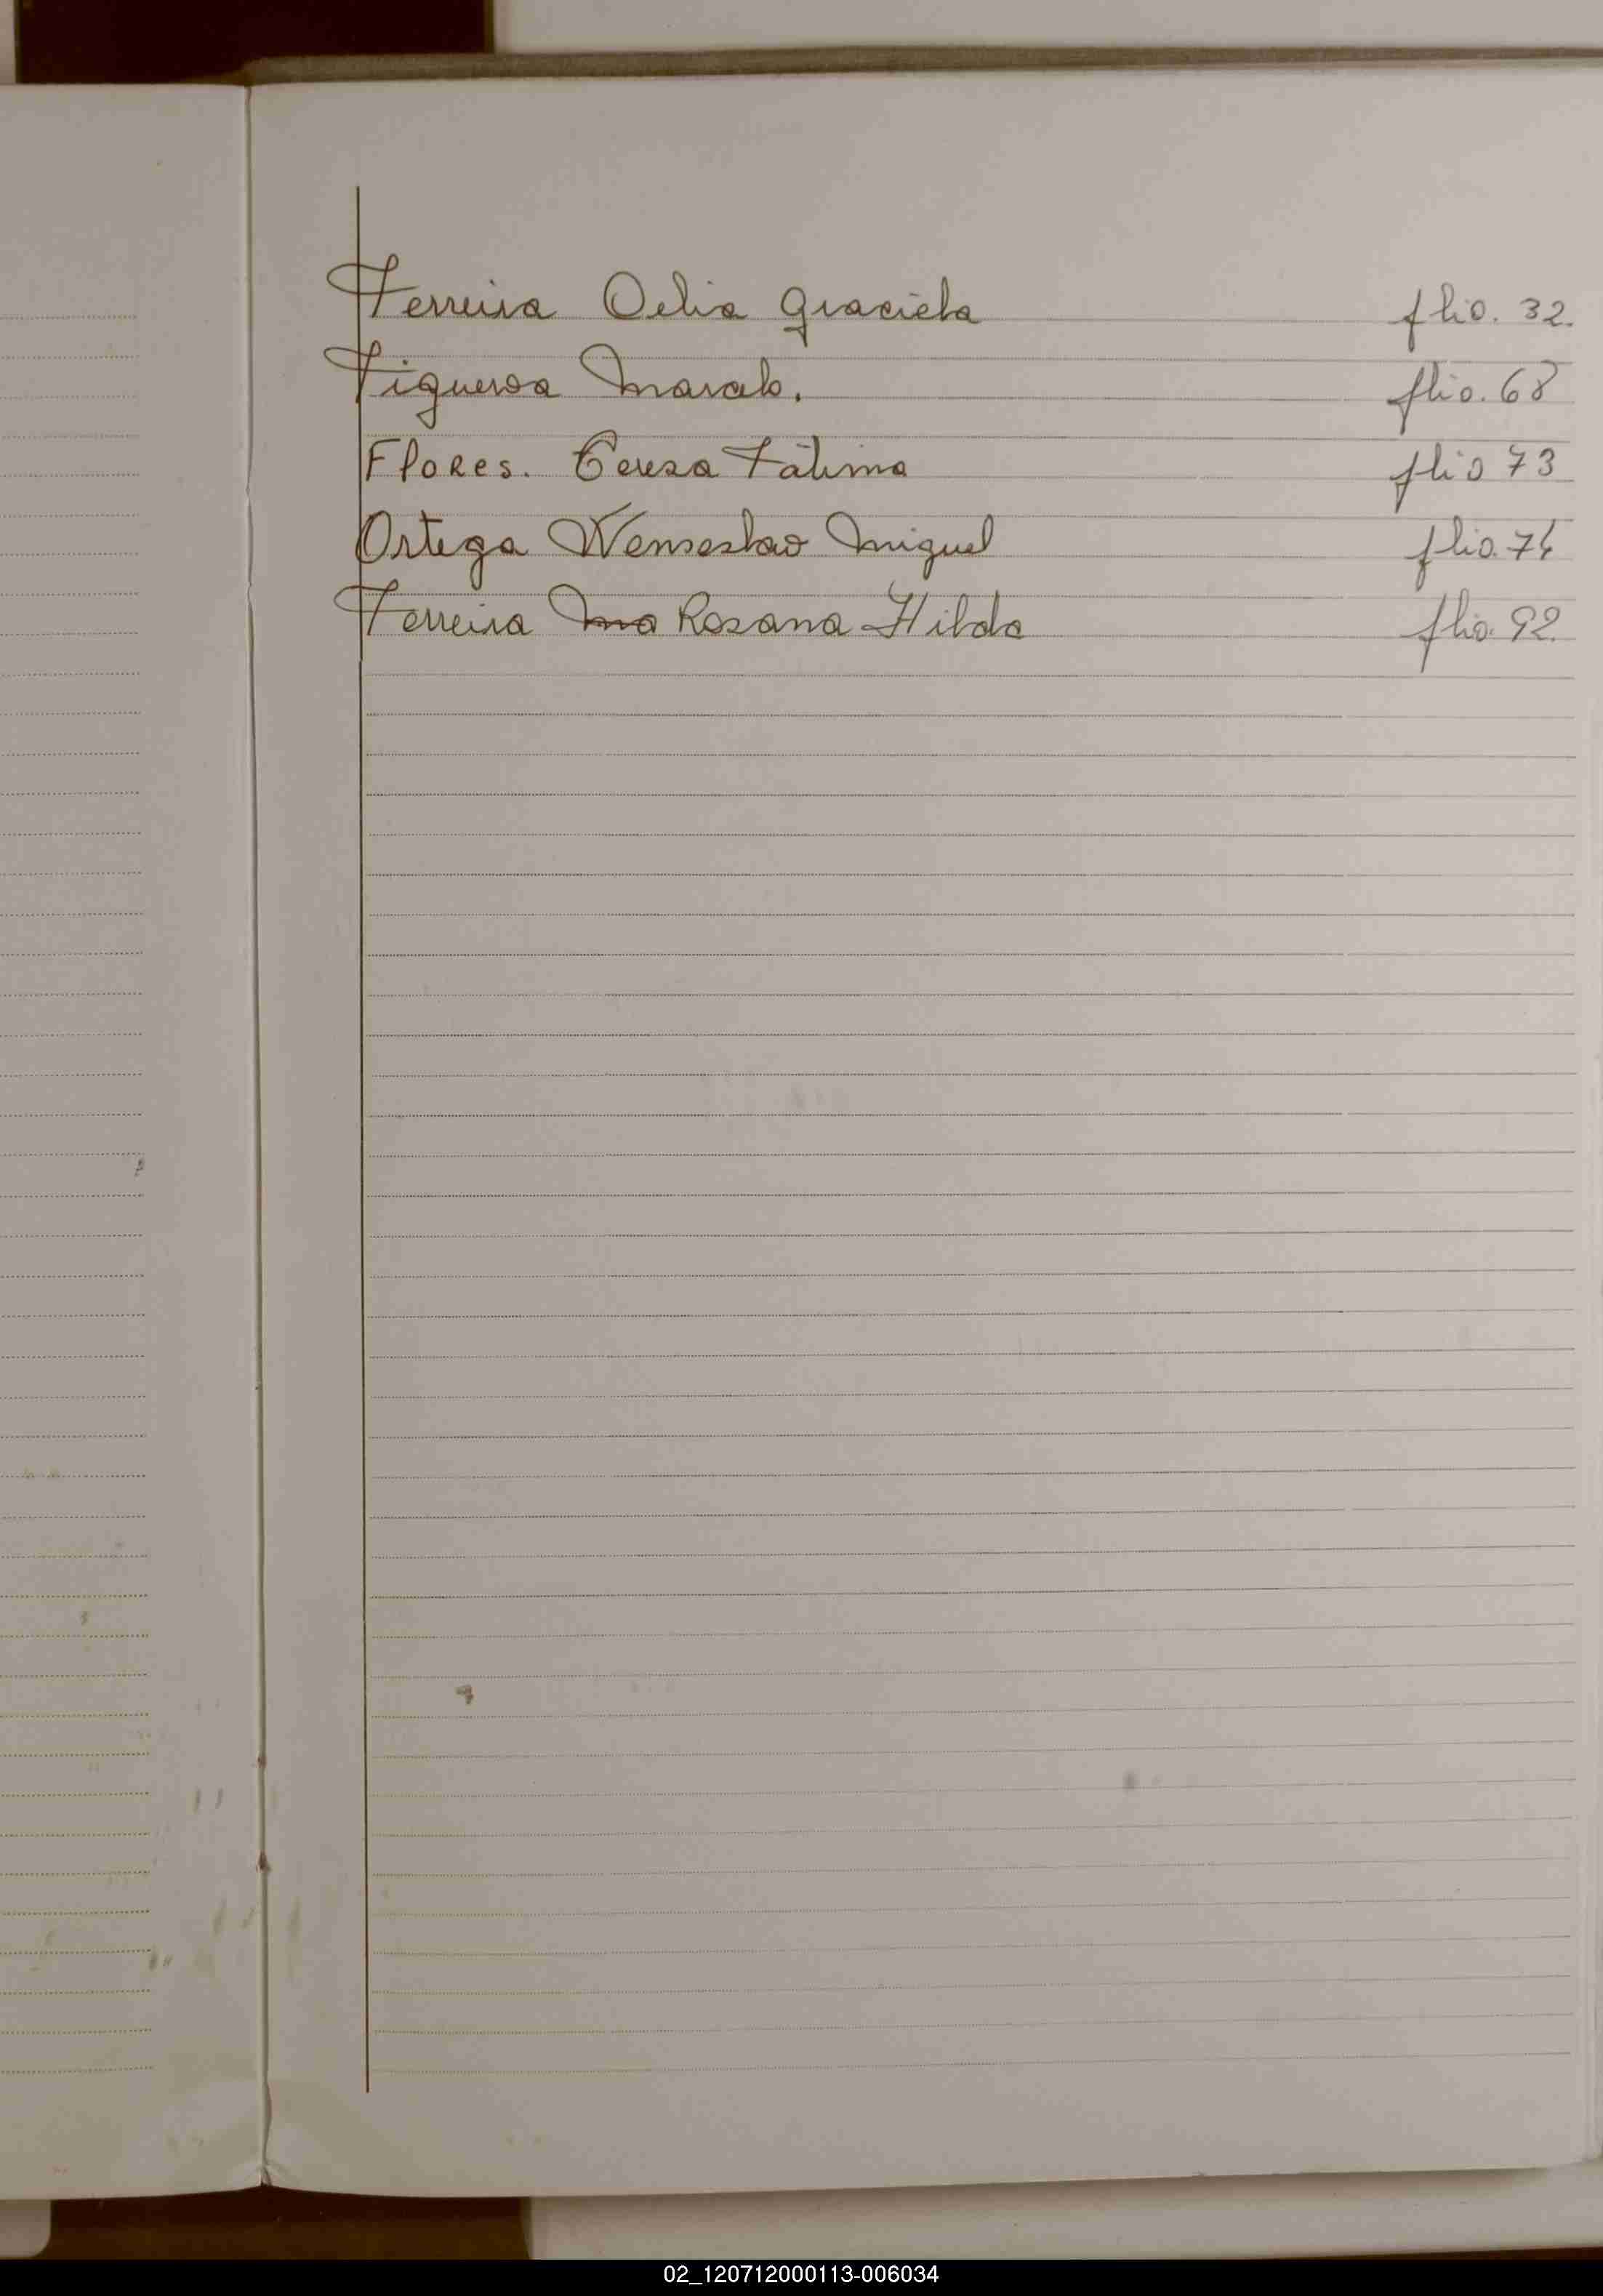 Ferreira Delia Graciela flio. 32.
Figueroa Marcelo. flio. 68
Flores. Teresa Fátima flio 73
Ortega Wenseslao Miguel flio. 74
Ferreira Ma Rosana Hilda flio. 92.
02_120712000113-006034